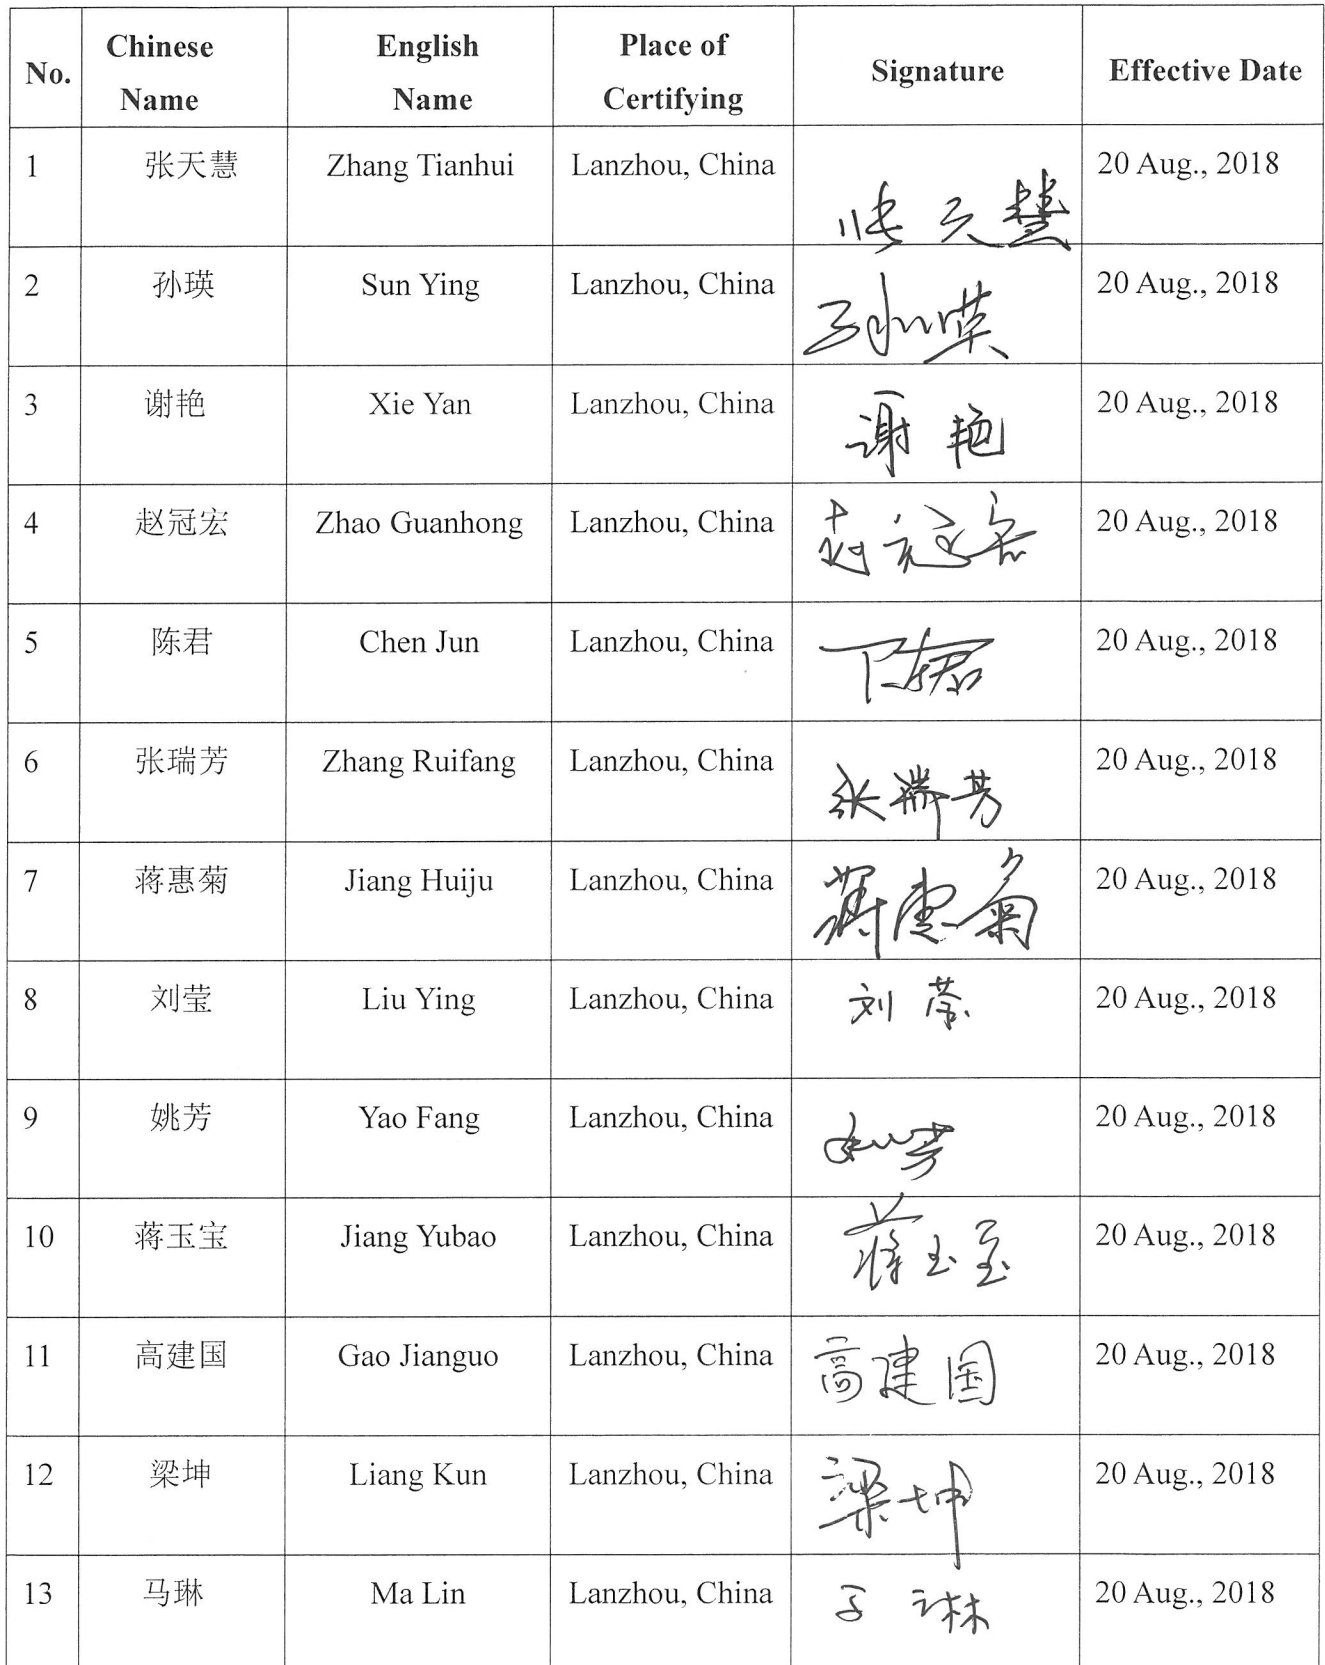 No. Chinese Name English Name Place of Certifying Signature Effective Date
1 张天慧 Zhang Tianhui Lanzhou, China 张天慧 20 Aug., 2018
2 孙瑛 Sun Ying Lanzhou, China 孙瑛 20 Aug., 2018
3 谢艳 Xie Yan Lanzhou, China 谢艳 20 Aug., 2018
4 赵冠宏 Zhao Guanhong Lanzhou, China 赵冠宏 20 Aug., 2018
5 陈君 Chen Jun Lanzhou, China 陈君 20 Aug., 2018
6 张瑞芳 Zhang Ruifang Lanzhou, China 张瑞芳 20 Aug., 2018
7 蒋惠菊 Jiang Huiju Lanzhou, China 蒋惠菊 20 Aug., 2018
8 刘莹 Liu Ying Lanzhou, China 刘莹 20 Aug., 2018
9 姚芳 Yao Fang Lanzhou, China 姚芳 20 Aug., 2018
10 蒋玉宝 Jiang Yubao Lanzhou, China 蒋玉宝 20 Aug., 2018
11 高建国 Gao Jianguo Lanzhou, China 高建国 20 Aug., 2018
12 梁坤 Liang Kun Lanzhou, China 梁坤 20 Aug., 2018
13 马琳 Ma Lin Lanzhou, China 马琳 20 Aug., 2018